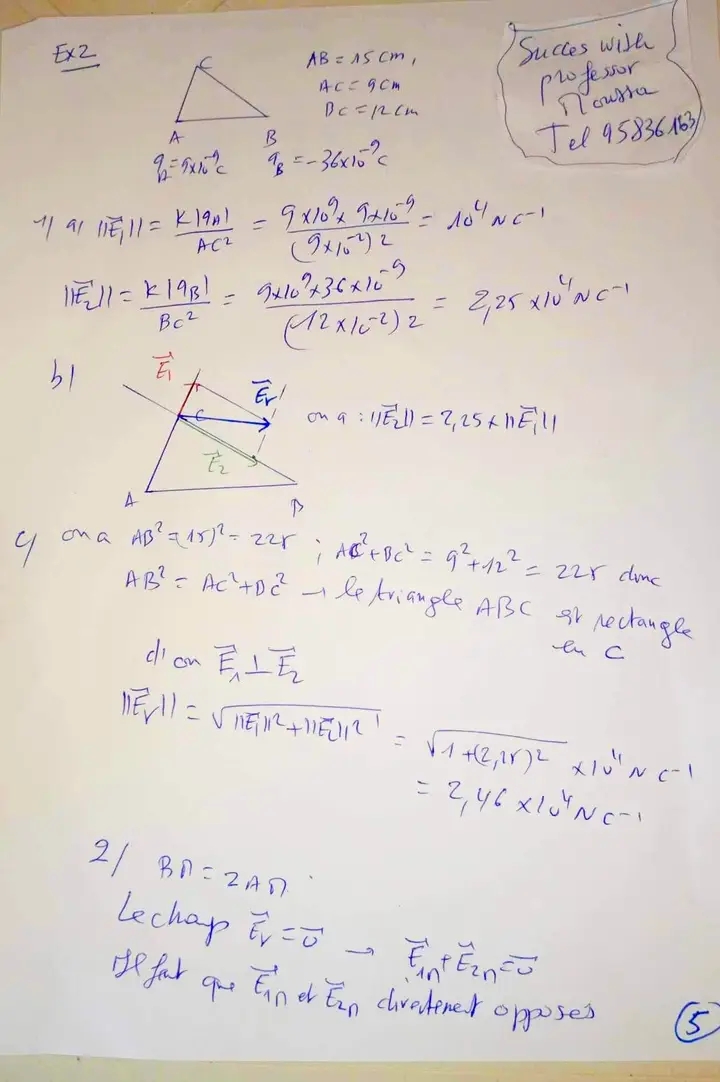 Ex2
C
A
B
AB = 15 cm,
AC = 9 cm
BC = 12 cm
Succes with
professor
Moussa
Tel 95836163
q_A = 9x10^-9 C
q_B = -36x10^-9 C
1) a) ||E⃗1|| = K|qA| / AC² = 9x10^9 x 9x10^-9 / (9x10^-2)2 = 10^4 N C^-1
||E⃗2|| = K|qB| / BC² = 9x10^9 x 36x10^-9 / (12x10^-2)2 = 2,25 x10^4 N C^-1
b)
E⃗1
E⃗r
C
E⃗2
A
B
on a : ||E⃗2|| = 2,25 x ||E⃗1||
c) on a AB² = (15)² = 225 ; AC² + BC² = 9² + 12² = 225 donc
AB² = AC² + BC² → le triangle ABC est rectangle
en C
d'on E⃗1 ⊥ E⃗2
||E⃗r|| = √||E⃗1||² + ||E⃗2||² = √1 + (2,25)² x10^4 N C^-1
= 2,46 x10^4 N C^-1
2/ BM = 2AM
Le champ E⃗r = 0⃗ → E⃗1M + E⃗2M = 0⃗
Il faut que E⃗1M et E⃗2M directement opposés
5